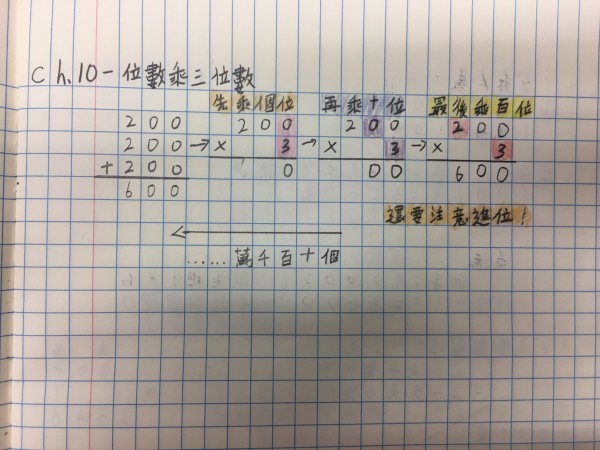 Ch.10 一位數乘三位數
先乘個位 再乘十位 最後乘百位
200 200 200 200
200 → × 3 → × 3 → × 3
+ 200 0 00 600
600
還要注意進位!
......萬千百十個